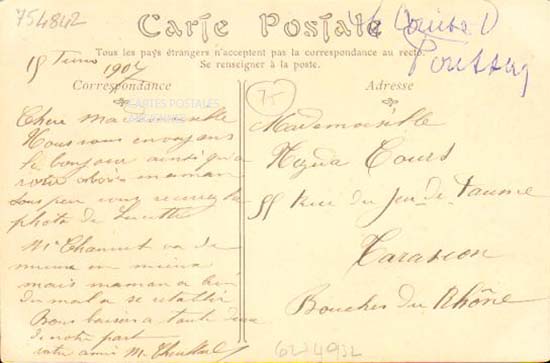 754842
Carte Postale
Tous les pays étrangers n'acceptent pas la correspondance au recto.
Se renseigner à la poste.
15 1907
Correspondance
CARTES POSTALES
Chère Mademoiselle
Nous vous envoyons
le bonjour ainsi qu'à
votre maman
sous peu vous recevrez la
photo de Lucette
va de
mieux en mieux
mais maman a bien
du mal a se rétablir
Bons baisers a toute deux
de notre part
votre amie
75
Adresse
Mademoiselle
Court
55 Rue du Jeu de Paume
Tarascon
Bouches du Rhône